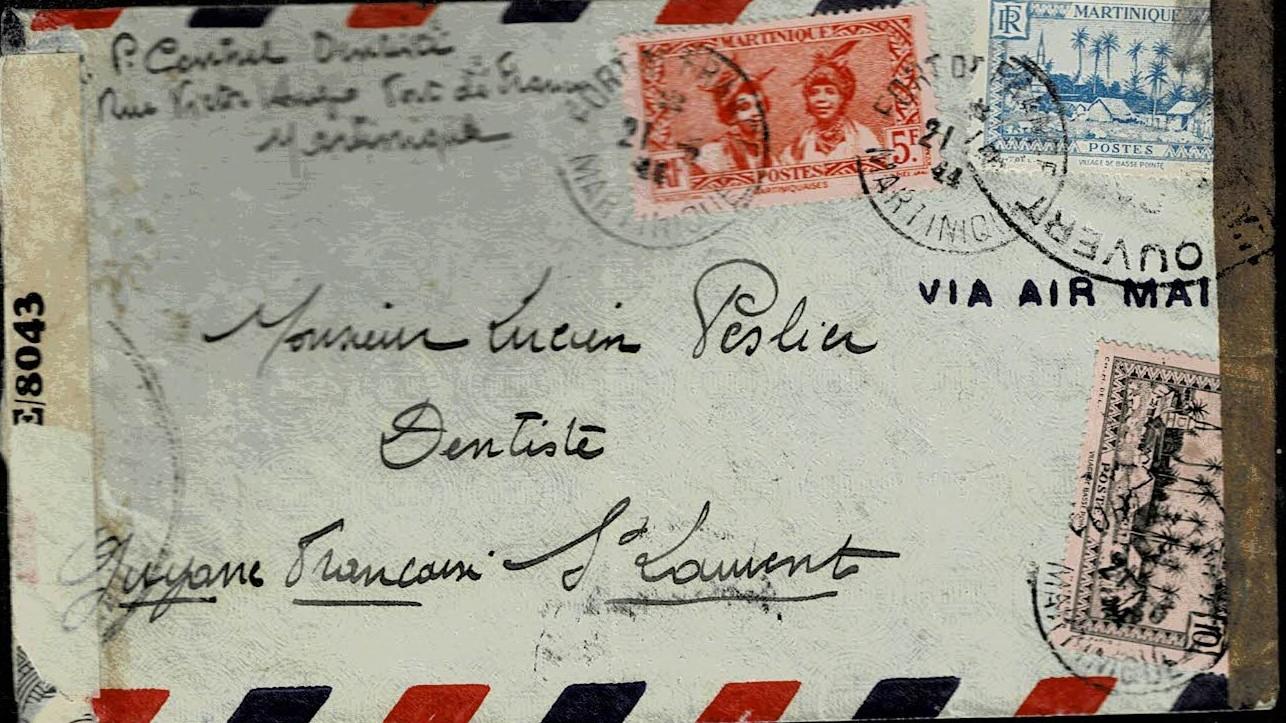 P. Dentiste
Rue Victor Hugo Fort de France
Martinique
MARTINIQUE
5F
RF
POSTES
MARTINIQUAISES
FORT DE FRANCE
21
MARTINIQUE
FORT DE FRANCE
21
MARTINIQUE
RF
MARTINIQUE
POSTES
VILLAGE DE BASSE POINTE
OUVERT
VIA AIR MAI
E/8043
Monsieur Lucien Peslier
Dentiste
Guyane Francaise St Laurent
MARTINIQUE
POSTES
VILLAGE DE BASSE POINTE
10
MARTINIQUE